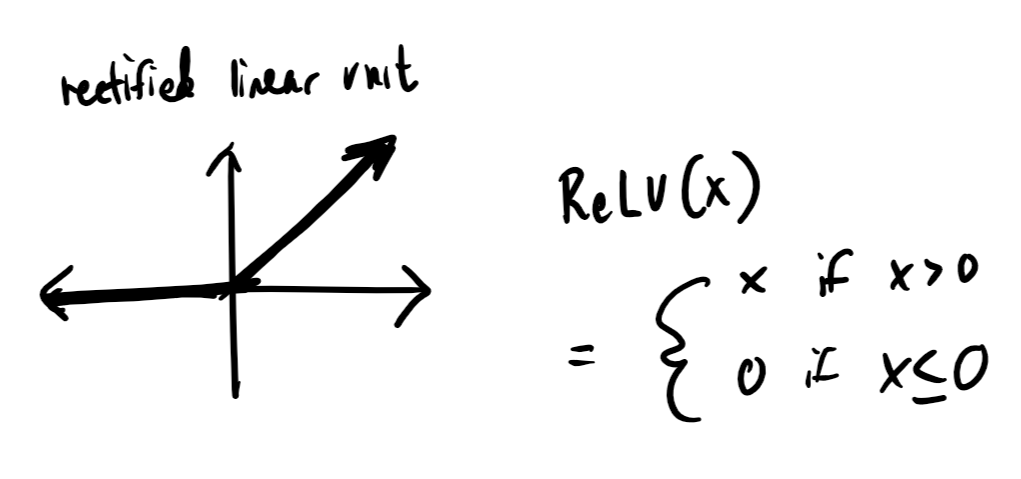 rectified linear unit
ReLU(x)
= { x if x>0
0 if x≤0